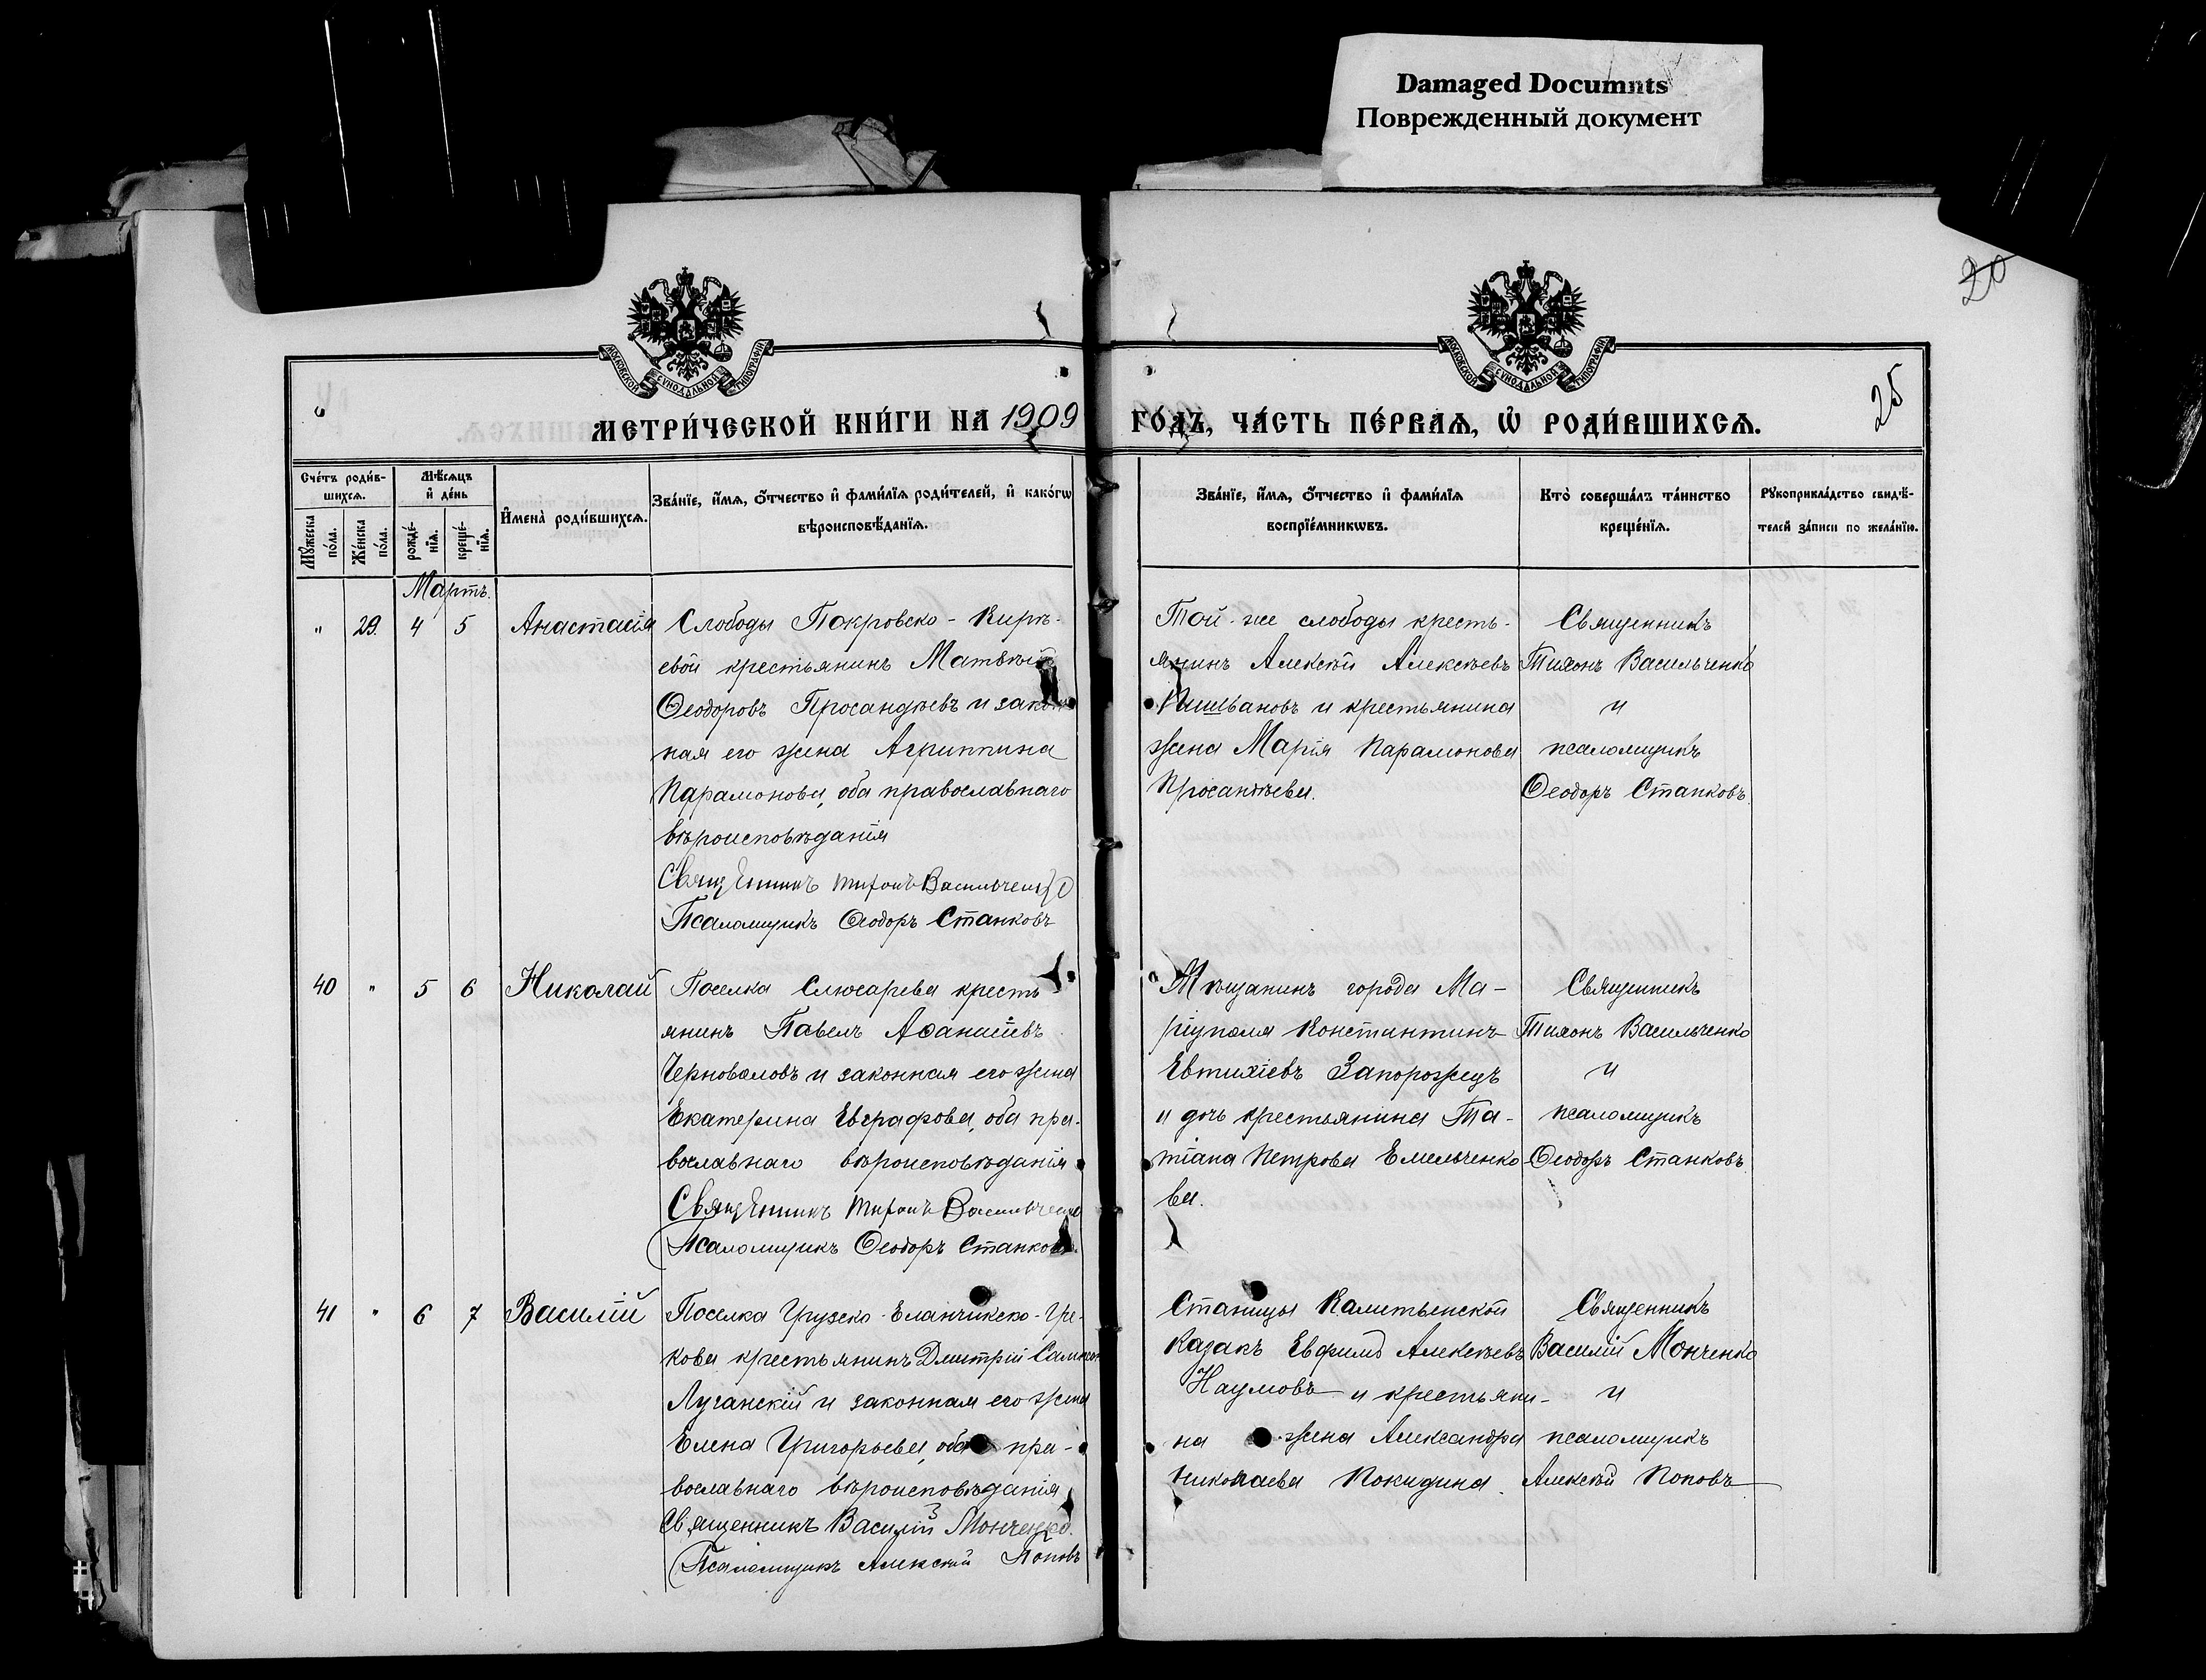 Damaged Documnts
Поврежденный документ
20
25
МОСКОВСКОЙ СѴНОДАЛЬНОЙ ТИПОГРАФІИ
МОСКОВСКОЙ СѴНОДАЛЬНОЙ ТИПОГРАФІИ
МЕТРИ́ЧЕСКОЙ КНИ́ГИ НА 1909
ГО́ДЪ, ЧА́СТЬ ПЕ́РВАѦ, Ѿ РОДИ́ВШИХСѦ.
Сче́тъ роди́в-
шихсѧ.
Мѣ́сѧцъ
и҆ де́нь
Мꙋ́жеска
по́ла.
Же́нска
по́ла.
рожде́-
нїѧ.
креще́-
нїѧ.
И҆мена̀ роди́вшихсѧ.
Зва́нїе, и҆́мѧ, ѻ҆́тчество и҆ фами́лїѧ роди́телей, и҆ како́гѡ
вѣроисповѣ́данїѧ.
Зва́нїе, и҆́мѧ, ѻ҆́тчество и҆ фами́лїѧ
воспрїе́мникѡвъ.
Кто̀ соверша́лъ та́инство
креще́нїѧ.
Рꙋкоприкла́дство свидѣ́-
телей за́писи по жела́нїю.
Мартъ.
" 29. 4 5 Анастасія
Слободы Покровско-Кирѣ-
евой крестьянинъ Матвѣй
Ѳеодоровъ Просандѣевъ и закон
ная его жена Агриппина
Парамонова, оба православнаго
вѣроисповѣданія
Священникъ Тихонъ Васильченко
Псаломщикъ Ѳеодоръ Станковъ
Той-же слободы кресть-
янинъ Алексѣй Алексѣевъ
и крестьянина
жена Марія Парамонова
Просандѣева.
Священникъ
Тихонъ Васильченко
и
псаломщикъ
Ѳеодоръ Станковъ.
40 " 5 6 Николай
Поселка Слюсарева кресть
янинъ Павелъ Аѳанасіевъ
Черноваловъ и законная его жена
Екатерина Евграфова, оба пра-
вославнаго вѣроисповѣданія
Священникъ Тихонъ Васильченко
Псаломщикъ Ѳеодоръ Станковъ.
Мѣщанинъ города Ма-
ріуполя Константинъ
Евтихіевъ Запорожецъ
и дочь крестьянина Та-
тіана Петрова Емельченко
ва.
Священникъ
Тихонъ Васильченко
и
псаломщикъ
Ѳеодоръ Станковъ.
41 " 6 7 Василій
Поселка Грузско-Еланчикско-Гре-
кова крестьянинъ Дмитрій
Луганскій и законная его жена
Елена Григорьева, оба пра-
вославнаго вѣроисповѣданія
Священникъ Василій Монченко.
Псаломщикъ Алексѣй Поповъ
Станицы
Казакъ Евфимъ Алексѣевъ
Наумовъ и крестьяни-
на жена Александра
Николаева Покидина.
Священникъ
Василій Монченко
и
псаломщикъ
Алексѣй Поповъ